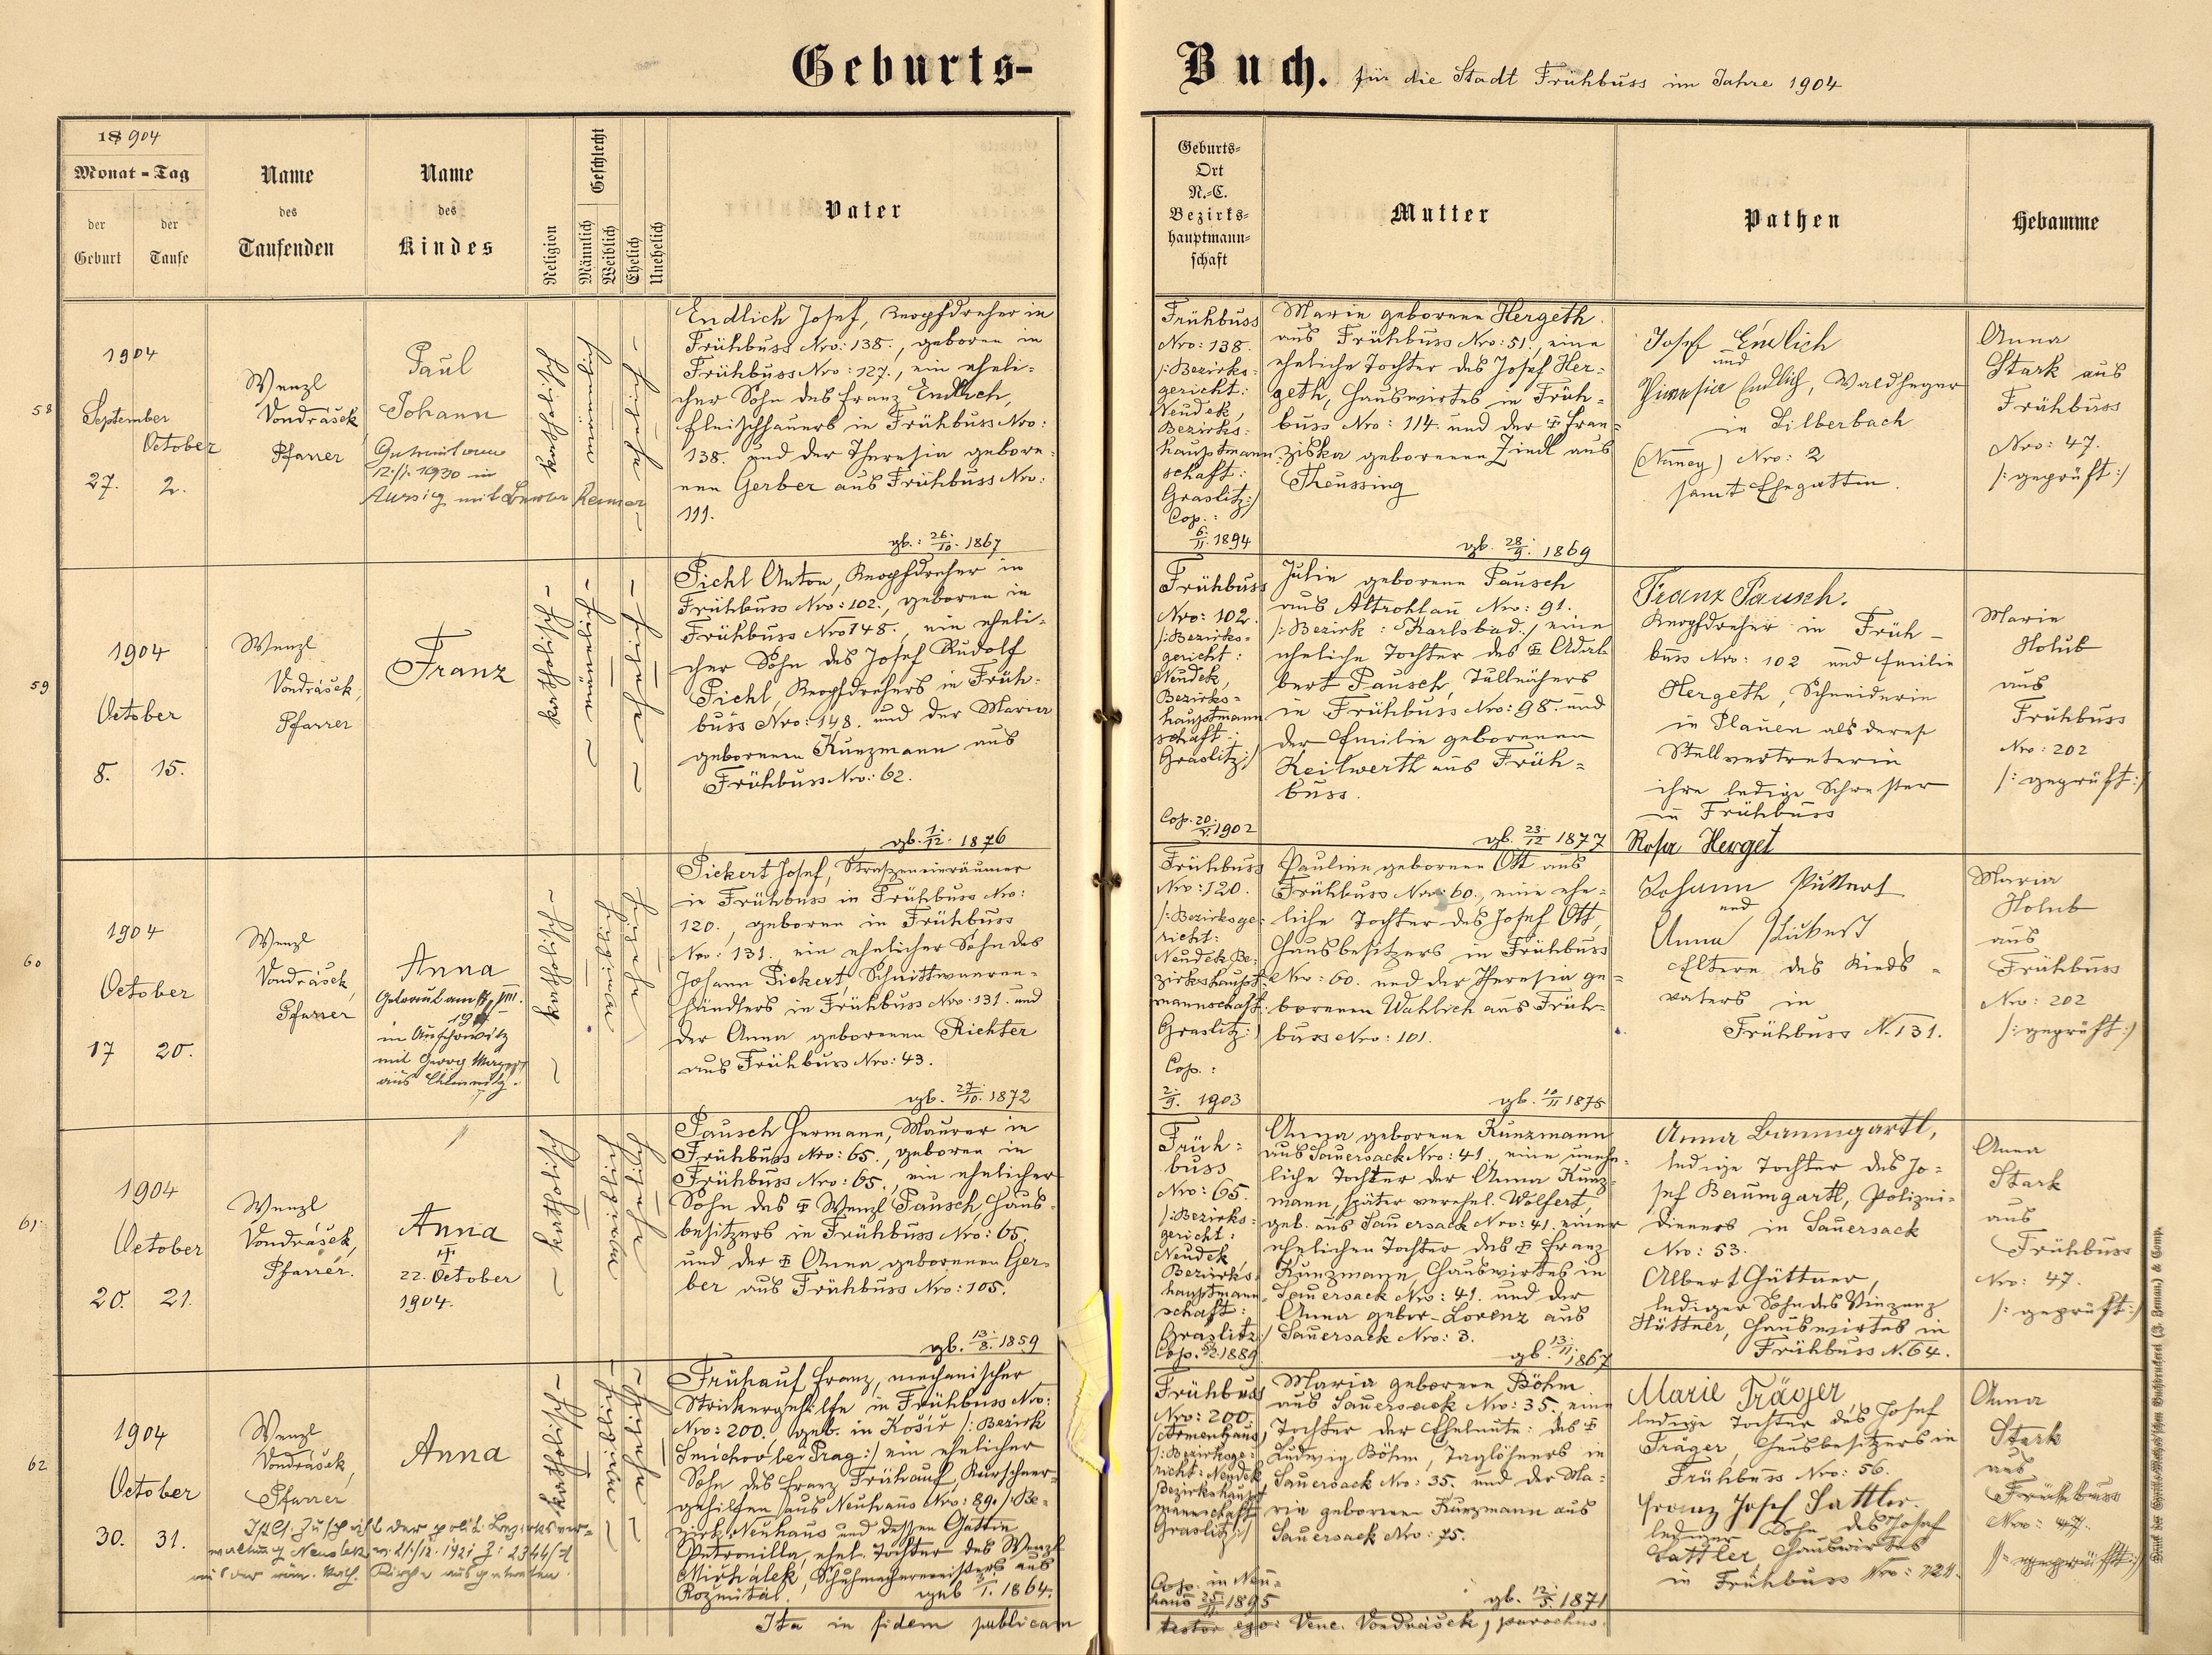 Geburts-Buch. für die Stadt Frühbuss im Jahre 1904
18 904
Monat-Tag
der Geburt
der Taufe
Name
des
Taufenden
Name
des
Kindes
Religion
Geschlecht
Männlich
Weiblich
Ehelich
Unehelich
Vater
Geburts-
Ort
N.-C.
Bezirks-
hauptmann-
schaft
Mutter
Pathen
Hebamme
58
1904
September
October
27.
2.
Wenzl
Vondrásek,
Pfarrer
Paul
Johann
Getraut am
12./. 1930 in
Aussig mit
katholisch
Endlich Josef, Knopfdreher in
Frühbuss Nro: 138., geboren in
Frühbuss Nro: 127., ein eheli-
cher Sohn des Franz Endlich,
Fleischhauers in Frühbuss Nro:
138. und der Theresia gebore-
nen Gerber aus Frühbuss Nro:
111.
gb.: 26./10. 1867
Frühbuss
Nro: 138.
/:Bezirks-
gericht:
Neudek,
Bezirks-
hauptmann-
schaft:
Graslitz:/
Cop.:
6/11. 1894
Marie geborene Hergeth
aus Frühbuss Nro: 51, eine
eheliche Tochter des Josef Her-
geth, Hauswirtes in Früh-
buss Nro: 114. und der Fran-
ziska geborenen Zindl aus
Theussing
gb. 28./9. 1869
Josef Endlich
und
Endlich, Waldheger
in Silberbach
Nro: 2
samt Ehegattin.
Anna
Stark aus
Frühbuss
Nro: 47.
/:geprüft:/
59
1904
October
8.
15.
Wenzl
Vondrásek,
Pfarrer
Franz
- katholisch
Pichl Anton, Knopfdreher in
Frühbuss Nro: 102., geboren in
Frühbuss Nro 148., ein eheli-
cher Sohn des Josef Rudolf
Pichl, Knopfdrehers in Früh-
buss Nro: 148. und der Maria
geborenen Kunzmann aus
Frühbuss Nro: 62.
gb. 1./12. 1876
Frühbuss
Nro: 102.
/:Bezirks-
gericht:
Neudek,
Bezirks-
hauptmann-
schaft:
Graslitz:/
Cop. 20./. 1902
Julie geborene Pausch
aus Altrohlau Nro: 91.
/:Bezirk: Karlsbad:/ eine
eheliche Tochter des Adal-
bert Pausch,
in Frühbuss Nro: 98. und
der Emilie geborenen
Keilwerth aus Früh-
buss.
gb. 23/12 1877
Franz Pausch.
Knopfdreher in Früh-
buss Nro: 102 und Emilie
Hergeth, Schneiderin
in Plauen als deren
Stellvertreterin
ihre ledige Schwester
in Frühbuss
Rosa Herget
Marie
Holub
aus
Frühbuss
Nro: 202
/:geprüft:/
60
1904
October
17
20.
Wenzl
Vondrásek,
Pfarrer
Anna
Getraut am
in Auschowitz
mit Georg
aus
katholisch
Pickert Josef, Strasseneinräumer
in Frühbuss in Frühbuss Nro:
120., geboren in Frühbuss
Nro: 131. ein ehelicher Sohn des
Johann Pickert, Schnittwaren-
händlers in Frühbuss Nro: 131. und
der Anna geborenen Richter
aus Frühbuss Nro: 43.
gb. 27./10. 1872
Frühbuss
Nro: 120.
/:Bezirksge-
richt:
Neudek Be-
zirkshaupt-
mannschaft:
Graslitz:/
Cop.:
2./9. 1903
Pauline geborene Ott aus
Frühbuss Nro: 60., eine ehe-
liche Tochter des Josef Ott,
Hausbesitzers in Frühbuss
Nro: 60. und der Theresia ge-
borenen Wahlich aus Früh-
buss Nro: 101.
gb. 10/11 1875
Johann Pickert
und
Anna Pickert
Eltern des Kinds-
vaters in
Frühbuss N. 131.
Maria
Holub
aus
Frühbuss
Nro: 202
/:geprüft:/
61
1904
October
20.
21.
Wenzl
Vondrásek,
Pfarrer.
Anna
✝
22. October
1904.
- katholisch
Pausch Hermann, Maurer in
Frühbuss Nro: 65., geboren in
Frühbuss Nro: 65., ein ehelicher
Sohn des ✝ Wenzl Pausch, Haus-
besitzers in Frühbuss Nro: 65.
und der ✝ Anna geborenen Ger-
ber aus Frühbuss Nro: 105.
gb. 13./8. 1859
Früh-
buss
Nro: 65.
/:Bezirks-
gericht:
Neudek
Bezirks-
hauptmann-
schaft:
Graslitz:/
Cop. 1889
Anna geborene Kunzmann
aus Sauersack Nro: 41. eine unehe-
liche Tochter der Anna Kunz-
mann, später verehel. Wolfert,
geb. aus Sauersack Nro: 41. einer
ehelichen Tochter des ✝ Franz
Kunzmann, Hauswirtes in
Sauersack Nro: 41. und der
Anna gebor- Lorenz aus
Sauersack Nro: 3.
gb. 13./11. 1867
Anna Baumgartl,
ledige Tochter des Jo-
sef Baumgartl, Polizei-
dieners in Sauersack
Nro: 53.
Albert Hüttner,
lediger Sohn des Vinzenz
Hüttner, Hauswirtes in
Frühbuss N. 64.
Anna
Stark
aus
Frühbuss
Nro: 47.
/:geprüft:/
62
1904
October
30.
31.
Wenzl
Vondrásek,
Pfarrer
Anna
der polit. Bezirksver-
waltung Neudek 1921 Z: 2344/
aus der röm. kath. Kirche ausgetreten.
- katholisch
Frühauf Franz, mechanischer
Strickergehilfe in Frühbuss Nro:
Nro: 200., geb. in Košíř /:Bezirk
Smichov bei Prag:/ ein ehelicher
Sohn des Franz Frühauf, Kürschner-
gehilfen aus Neuhaus Nro: 89. /:Be-
zirk Neuhaus und dessen Gattin
Petronilla, ehel. Tochter des Wenzl
Michalek, Schuhmachermeisters aus
Rozmital.
geb 1864.
Frühbuss
Nro: 200.
/Armenhaus/
/:Bezirksge-
richt: Neudek
Bezirkshaupt-
mannschaft
Graslitz:/
Cop. in Neu-
haus 25/11 1895
Maria geborene Böhm
aus Sauersack Nro: 35. eine
Tochter der Eheleute: des ✝
Ludwig Böhm, Taglöhners in
Sauersack Nro: 35. und der Ma-
rie geborenen Kunzmann aus
Sauersack Nro: 75.
gb. 12./5. 1871
Marie Träger
ledige Tochter des Josef
Träger, Hausbesitzers in
Frühbuss Nro: 56.
Franz Josef Sattler.
lediger Sohn des Josef
Sattler, Hauswirtes
in Frühbuss Nro: 124.
Anna
Stark
aus
Frühbuss
Nro: 47.
/:geprüft:/
Ita in fidem publicam
testor ego: Venc. Vondrásek, parochus.